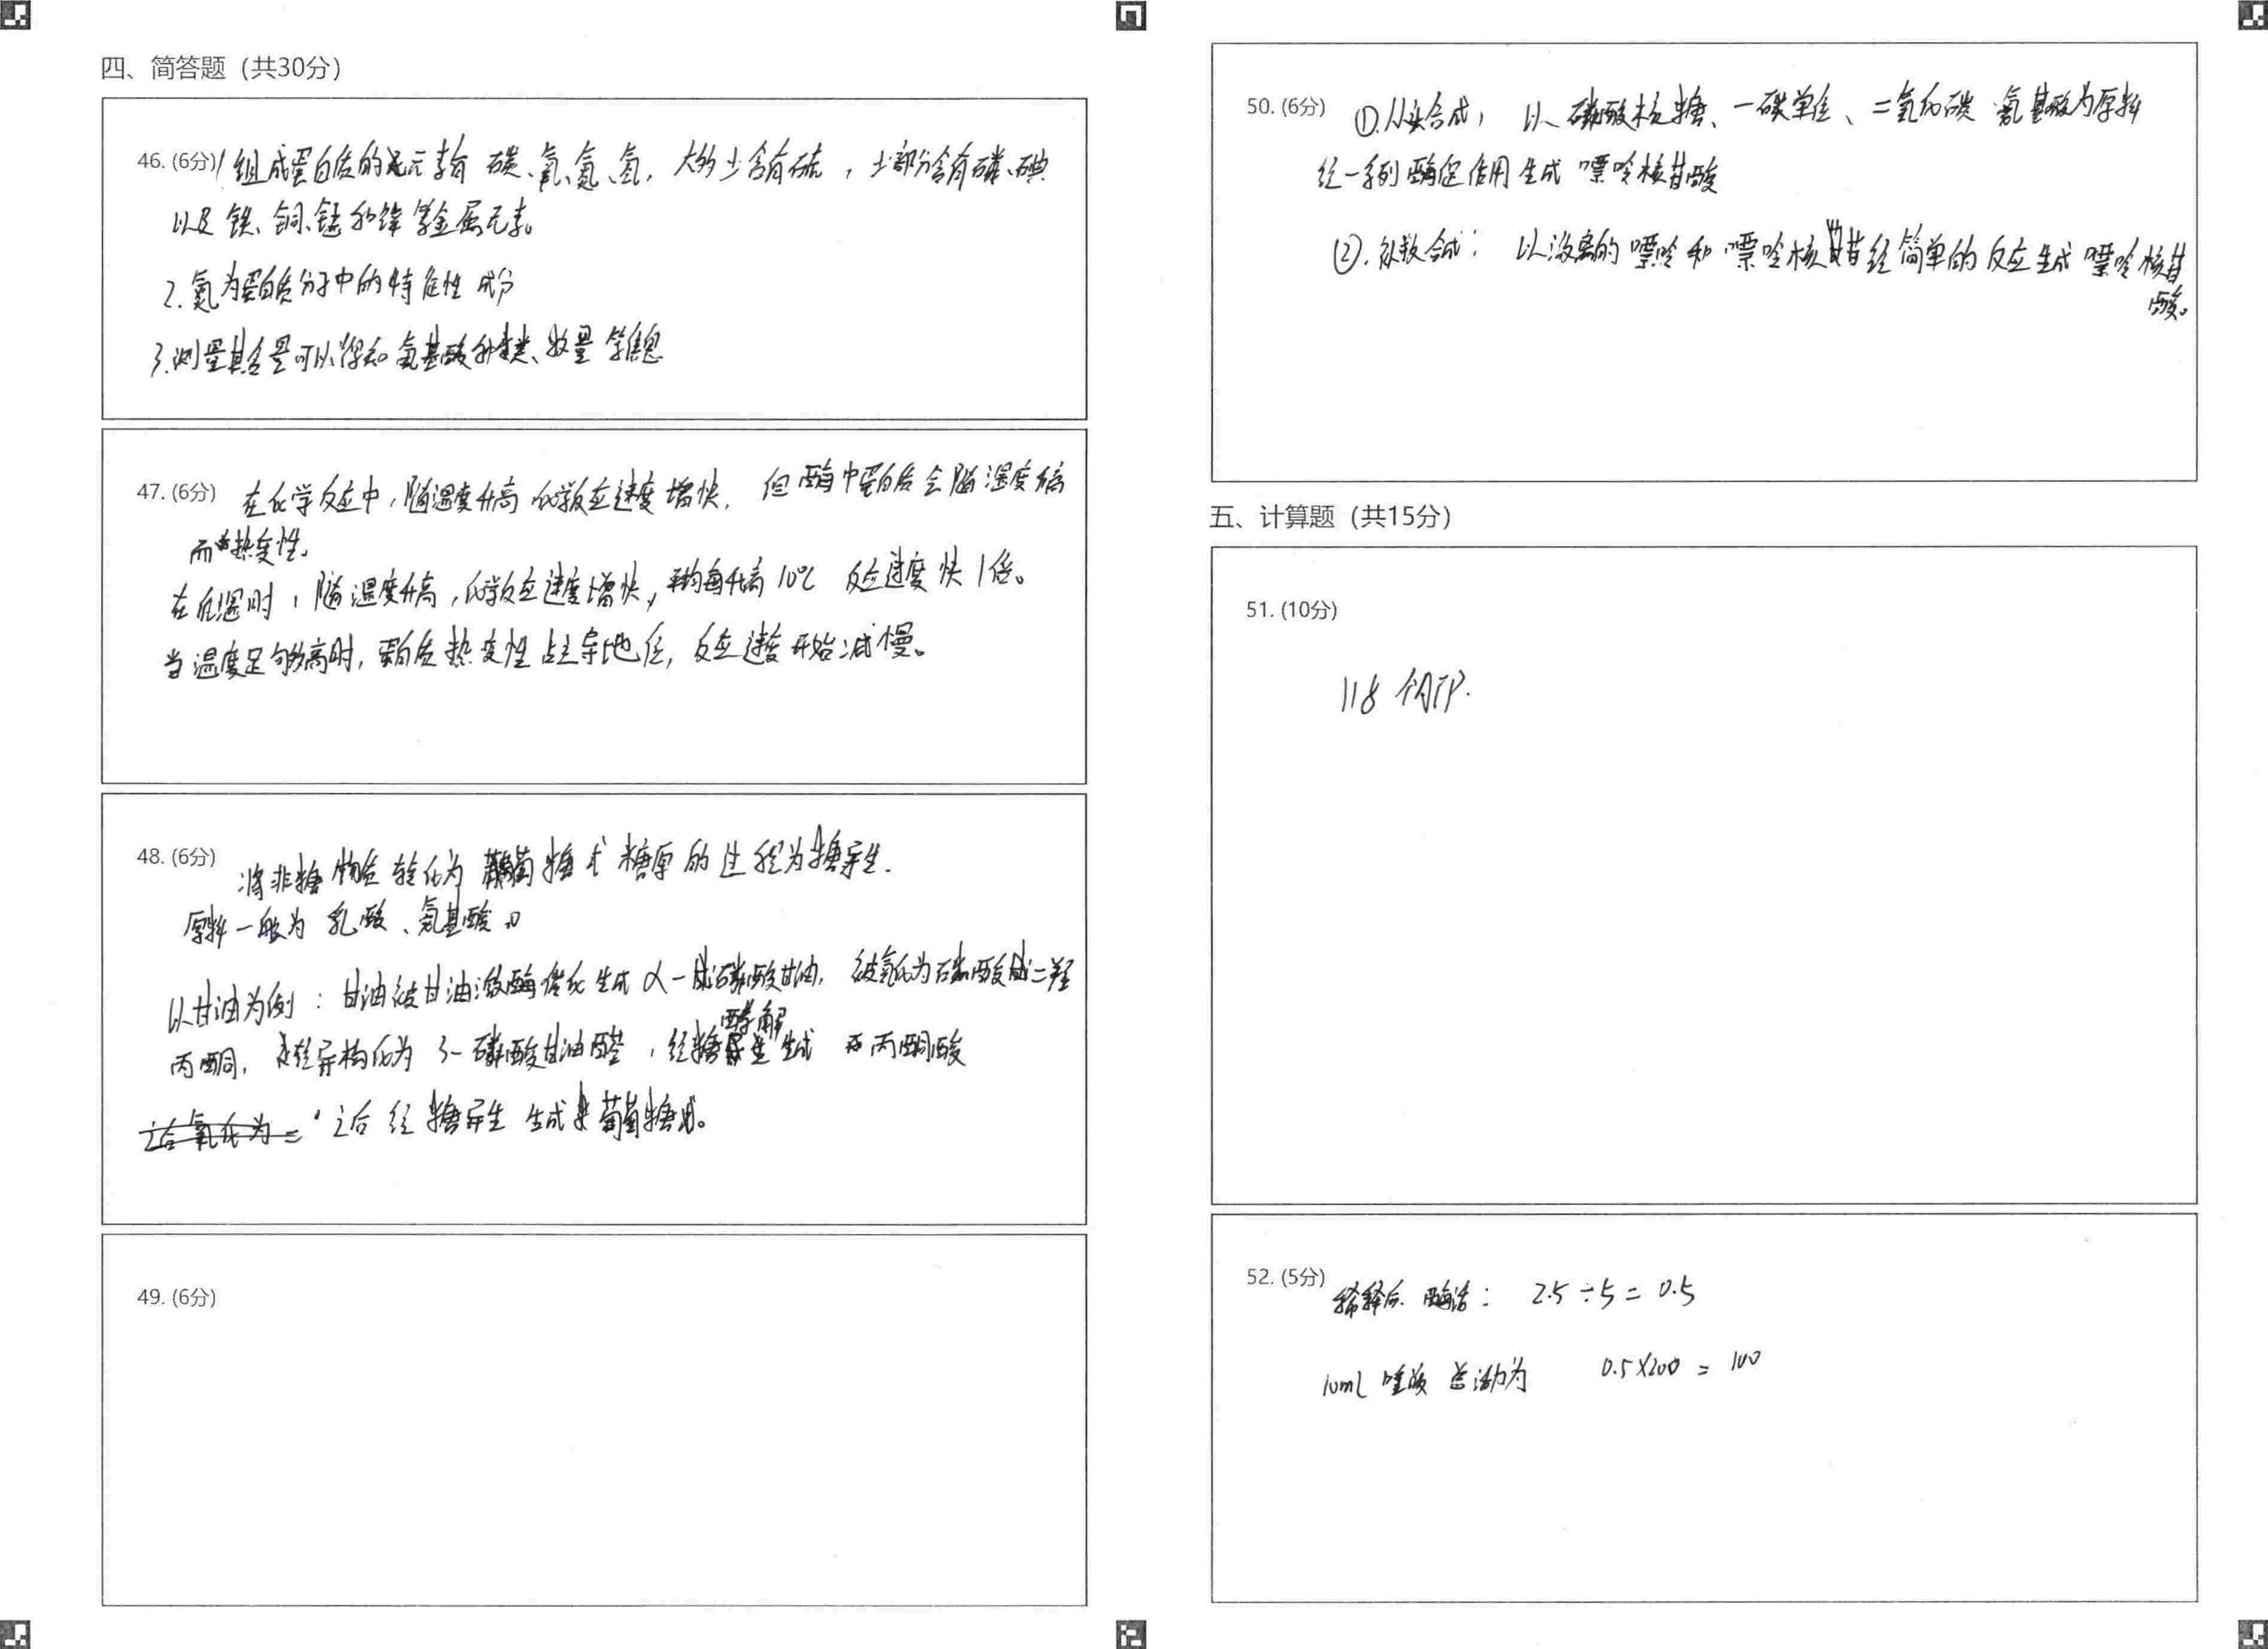 四、简答题（共30分）
46. (6分) 1 组成蛋白质的元素有 碳、氧、氮、氢，大多 含有硫，少部分含有磷、碘
以及 铁、铜、锰和锌等金属元素。
2. 氮为蛋白质分子中的特征性 成分
3. 测量其含量可以得知 氨基酸种类、数量 等信息
47. (6分) 在化学反应中，随温度升高 化学反应速度增快. 但酶中蛋白质会随温度 高
而 热变性。
在低温时，随温度升高，化学反应速度增快，平均每升高 10℃ 反应速度快1倍。
当温度足够高时，蛋白质热变性占主导地位，反应速度开始减慢。
48. (6分) 将非糖物质转化为葡萄糖或糖原的过程为糖异生.
原料一般为 乳酸、氨基酸
以甘油为例：甘油被甘油激酶催化生成 α- 磷酸甘油，被氧化为磷酸 二羟
丙酮， 异构化为 3-磷酸甘油醛，经糖酵解 生成 丙酮酸
之后氧化为二 之后 经 糖异生 生成 葡萄糖 。
49. (6分)
50. (6分) ①.从头合成： 以 磷酸核糖、一碳单位、二氧化碳 氨基酸为原料
经一系列酶促作用 生成 嘌呤核苷酸
②. 补救合成： 以游离的 嘌呤 和 嘌呤核苷经简单的反应生成 嘌呤核苷
酸。
五、计算题（共15分）
51. (10分)
118 个ATP.
52. (5分) 稀释后 酶活： 2.5÷5=0.5
10ml 唾液 总活力为 0.5×200=100